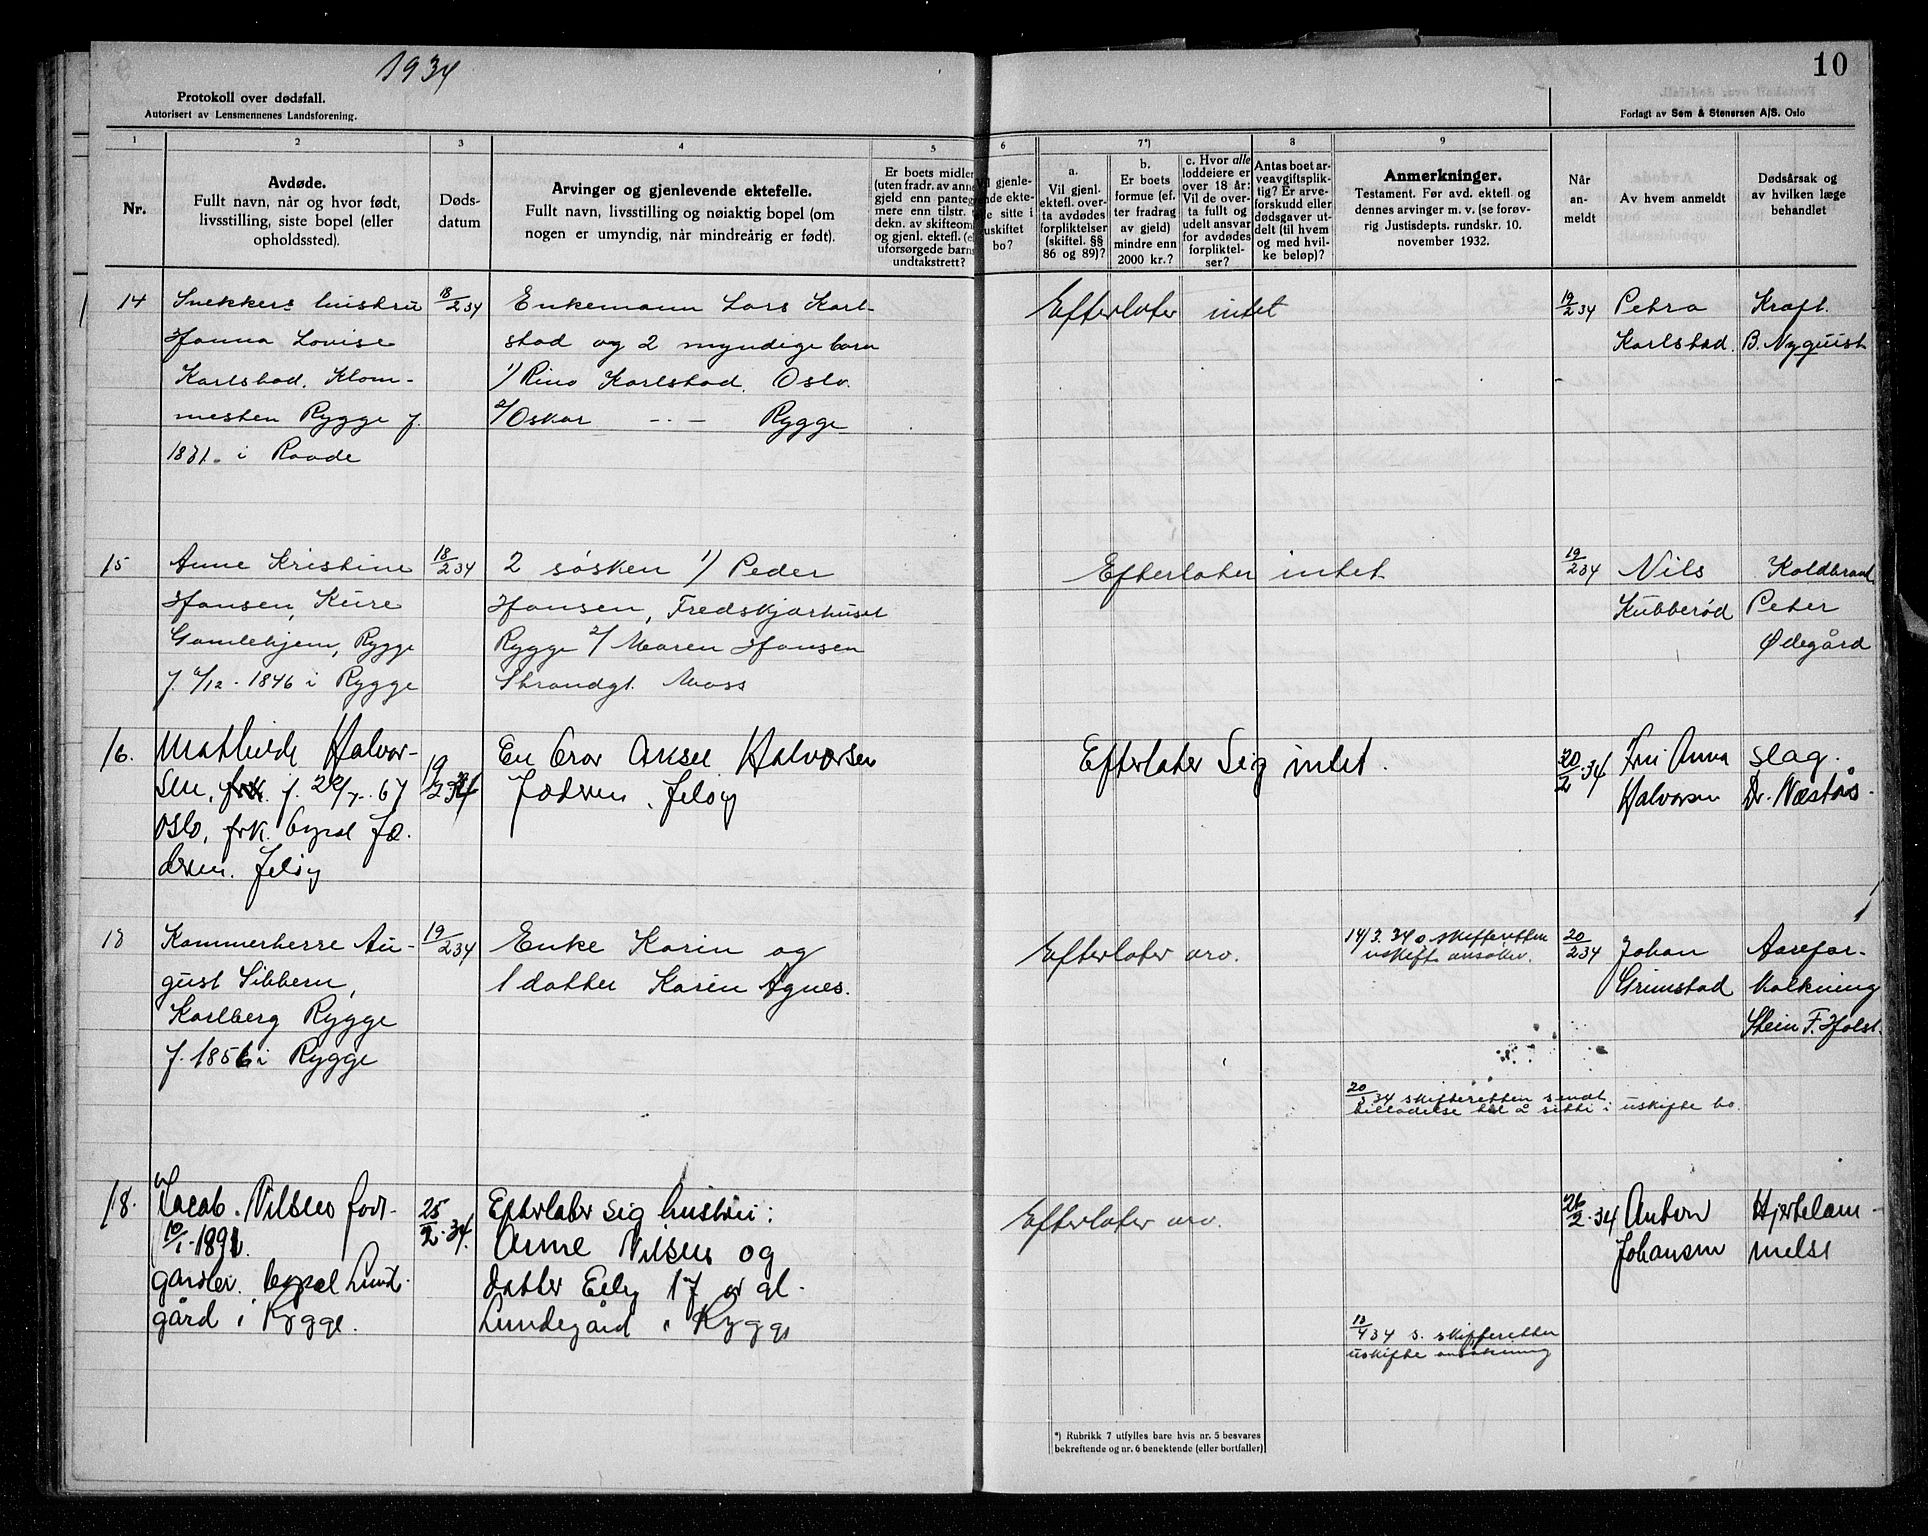 1934
10
Protokoll over dødsfall.
Autorisert av Lensmennenes Landsforening.
Forlagt av Sem & Stenersen A/S. Oslo
1 2 3 4 5 6 7*) 8 9
Nr.
Avdøde.
Fullt navn, når og hvor født,
livsstilling, siste bopel (eller
opholdssted).
Døds-
datum
Arvinger og gjenlevende ektefelle.
Fullt navn, livsstilling og nøiaktig bopel (om
nogen er umyndig, når mindreårig er født).
Er boets midler
(uten fradr. av anne
gjeld enn pantegj
mere enn tilstr. t
dekn. av skifteomk
og gjenl. ektefl. (e
uforsørgede barns
undtakstrett?
Vil gjenle-
ende ekte-
le sitte i
uskiftet
bo?
a.
Vil gjenl.
ektefl. over-
ta avdødes
forpliktelser
(skiftel. §§
86 og 89)?
b.
Er boets
formue (ef-
ter fradrag
av gjeld)
mindre enn
2000 kr.?
c. Hvor alle
loddeiere er
over 18 år:
Vil de fullt og
udelt ansvar
for avdødes
forpliktel-
ser?
Antas boet ar-
veavgiftsplik-
tig? Er arve-
forskudd eller
dødsgaver ut-
delt (til hvem
og med hvil-
ke beløp)?
Anmerkninger.
Testament. Før avd. ektefl. og
dennes arvinger m. v. (se forøv-
rig Justisdepts. rundskr. 10.
november 1932.
Når
an-
meldt
Av hvem anmeldt
Dødsårsak og
av hvilken læge
behandlet
14
Snekkers hustru
Hanna Lovise
Karlstad. Klom-
mesten Rygge f.
1871. i Raade
18/2 34
Enkemann Lars Karl-
stad og 2 myndige barn
1/ Rino Karlstad, Oslo.
2/ Oskar -"- Rygge
Efterlater intet
19/2 34
Petra
Karlstad.
Kræft.
B. Nyquist
15
Anne Kristine
Hansen, Kure
Gamlehjem, Rygge
f. 6/12 - 1846 i Rygge
18/2 34
2 søsken 1/ Peder
Hansen, Fredskjærhuset
Rygge 2/ Maren Hansen
Strandgt. Moss
Efterlater intet
19/2 34
Nils
Kubberød
Koldbrand
Peter
Ødegård
16.
Mathilde Halvor-
sen, f. 22/7. 67
Oslo, frk. bopel Jæ-
dren. Jeløy
19/2 34
En bror Aksel Halvorsen
Jædren, Jeløy
Efterlater sig intet.
20/2 . 34
Fru Anna
Halvorsen
Slag.
Dr. Næstås
18
Kammerherre Au-
gust Sibbern,
Karlberg Rygge
f. 1856 i Rygge
19/2 34
Enke Karin og
1 datter Karen Agnes.
Efterlater arv.
14/3. 34 s skifteretten
uskift. ansøkn.
20/2 34
Johan
Grimstad
Aarefor-
kalkning
Stein F. Holst.
20/3 34 skifteretten sendt
tilladelse til å sitte i uskifte bo.
18.
Jacob. Nilsen født
10/1-1891.
gardbr. bopel Lund-
gård i Rygge.
25/2 . 34.
Efterlater sig hustru:
Anne Nilsen og
datter Elly 17 år gl.
Lundegård i Rygge
Efterlater arv.
26/2 . 34
Anton
Johansen
Hjertelam-
melse
10/4 34 s. skifteretten
uskifte ansøkning
*) Rubrikk 7 utfylles bare hvis nr. 5 besvares
bekreftende og nr. 6 benektende (eller bortfaller)